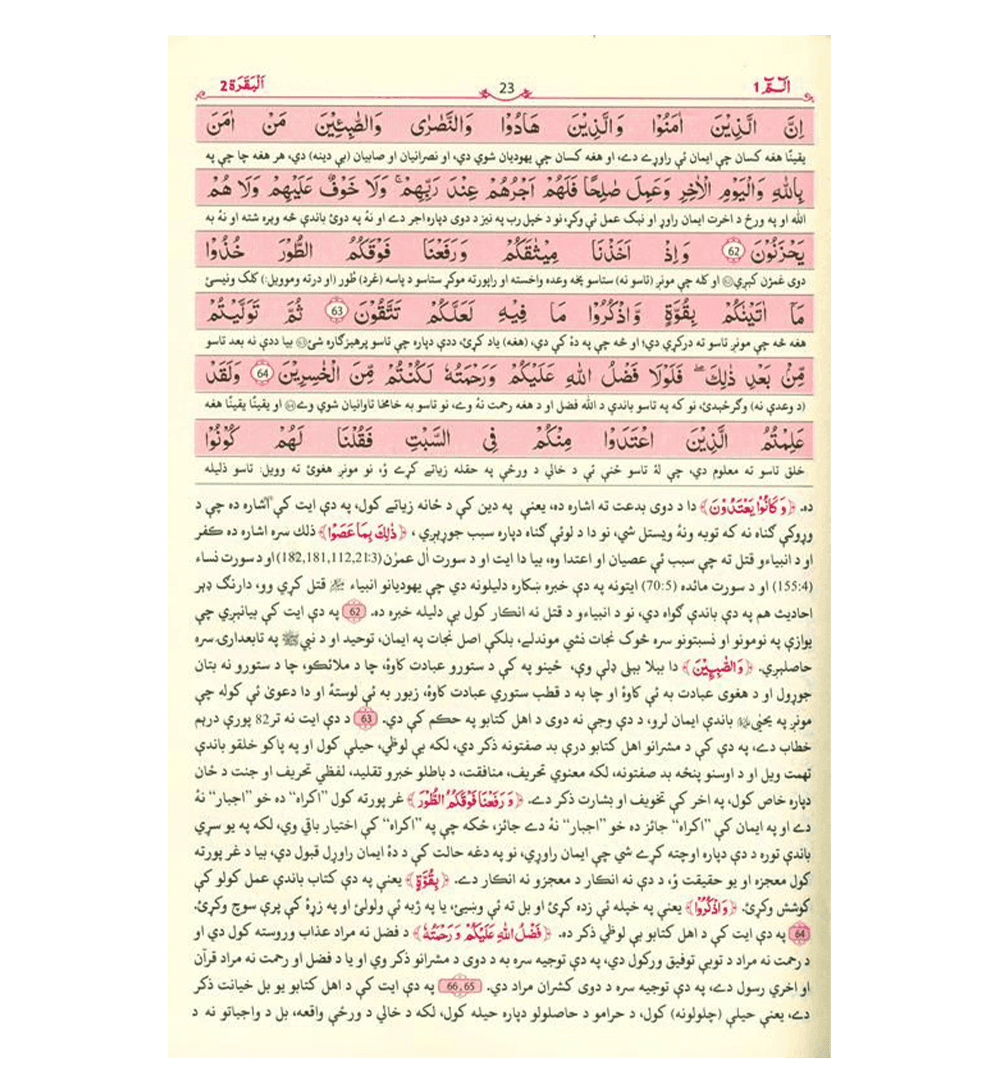 الٓمّٓ 1
23
اَلْبَقَرَة 2
اِنَّ الَّذِيْنَ اٰمَنُوْا وَالَّذِيْنَ هَادُوْا وَالنَّصٰرٰى وَالصّٰبِـِٕيْنَ مَنْ اٰمَنَ
يقينًا هغه کسان چې ايمان ئې راوړے دے، او هغه کسان چې يهوديان شوي دي، او نصرانيان او صابيان (بې دينه) دي، هر هغه چا چې په
بِاللّٰهِ وَالْيَوْمِ الْاٰخِرِ وَعَمِلَ صٰلِحًا فَلَهُمْ اَجْرُهُمْ عِنْدَ رَبِّهِمْ ۚ وَلَا خَوْفٌ عَلَيْهِمْ وَلَا هُمْ
الله او په ورځ د اخرت ايمان راوړو او نيک عمل ئې وکړو، نو د خپل رب په نيز د دوى دپاره اجر دے او نۀ په دوئ باندې څه ويره شته او نۀ به
يَحْزَنُوْنَ 62 وَاِذْ اَخَذْنَا مِيْثَقَكُمْ وَرَفَعْنَا فَوْقَكُمُ الطُّوْرَ خُذُوْا
دوى غمژن کېږي 62 او کله چې مونږ (تاسو نه) ستاسو پخه وعده واخسته او راپورته موکړ ستاسو د پاسه (غرد) طُور (او درته وموويل:) کلک ونيسئ
مَآ اٰتَيْنٰكُمْ بِقُوَّةٍ وَّاذْكُرُوْا مَا فِيْهِ لَعَلَّكُمْ تَتَّقُوْنَ 63 ثُمَّ تَوَلَّيْتُمْ
هغه څه چې مونږ تاسو ته درکړي دي؛ او څه چې په دۀ کې دي، (هغه) ياد کړئ، ددې دپاره چې تاسو پرهيزګاره شئ 63 بيا ددې نه بعد تاسو
مِّنْۢ بَعْدِ ذٰلِكَ ۖ فَلَوْلَا فَضْلُ اللّٰهِ عَلَيْكُمْ وَرَحْمَتُهٗ لَكُنْتُمْ مِّنَ الْخٰسِرِيْنَ 64 وَلَقَدْ
(د وعدې نه) وګرځېدئ، نو که په تاسو باندې د الله فضل او د هغه رحمت نۀ وے، نو تاسو به خامخا تاوانيان شوي وے 64 او يقينًا يقينًا هغه
عَلِمْتُمُ الَّذِيْنَ اعْتَدَوْا مِنْكُمْ فِى السَّبْتِ فَقُلْنَا لَهُمْ كُوْنُوْا
خلق تاسو ته معلوم دي، چې لۀ تاسو ځنې ئې د خالي د ورځې په حقله زياتے کړے ؤ، نو مونږ هغوئ ته وويل: تاسو ذليله
ده. ﴿وَكَانُوْا يَعْتَدُوْنَ﴾ دا د دوى بدعت ته اشاره ده، يعنې په دين کې د ځانه زياتے کول، په دې ايت کې اشاره ده چې د
وړوکې ګناه نه که توبه ونۀ ويستل شي، نو دا د لوئې ګناه دپاره سبب جوړېږي ، ﴿ذٰلِكَ بِمَا عَصَوْا﴾ ذلك سره اشاره ده کفر
او د انبياءو قتل ته چې سبب ئې عصيان او اعتدا وه، بيا دا ايت او د سورت اٰل عمرٰن (182,181,112,21:3) او د سورت نساء
(155:4) او د سورت مائده (70:5) ايتونه په دې خبره ښکاره دليلونه دي چې يهوديانو انبياء قتل کړي وو، دارنګ ډېر
احاديث هم په دې باندې ګواه دي، نو د انبياءو د قتل نه انکار کول بې دليله خبره ده. 62 په دې ايت کې بيانېږي چې
يوازې په نومونو او نسبتونو سره څوک نجات نشي موندلے، بلکې اصل نجات په ايمان، توحيد او د نبي ﷺ په تابعدارۍ سره
حاصلېږي. ﴿وَالصّٰبِـِٕيْنَ﴾ دا بېلا بېلې ډلې وې، ځينو په کې د ستورو عبادت کاوۀ، چا د ملائکو، چا د ستورو نه بتان
جوړول او د هغوى عبادت به ئې کاوۀ او چا به د قطب ستوري عبادت کاوۀ، زبور به ئې لوستۀ او دا دعوىٰ ئې کوله چې
مونږ په يحيٰى باندې ايمان لرو، د دې وجې نه دوى د اهل کتابو په حکم کې دي. 63 د دې ايت نه تر 82 پورې درېم
خطاب دے، په دې کې د مشرانو اهل کتابو درې بد صفتونه ذکر دي، لکه بې لوظي، حيلې کول او په پاکو خلقو باندې
تهمت ويل او د اوسنو پنځه بد صفتونه، لکه معنوي تحريف، منافقت، د باطلو خبرو تقليد، لفظي تحريف او جنت د ځان
دپاره خاص کول، په اخر کې تخويف او بشارت ذکر دے. ﴿وَرَفَعْنَا فَوْقَكُمُ الطُّوْرَ﴾ غر پورته کول ”اکراه“ ده خو ”اجبار“ نۀ
دے او په ايمان کې ”اکراه“ جائز ده خو ”اجبار“ نۀ دے جائز، ځکه چې په ”اکراه“ کې اختيار باقي وي، لکه په يو سړي
باندې توره د دې دپاره اوچته کړے شي چې ايمان راوړي، نو په دغه حالت کې د دۀ ايمان راوړل قبول دي، بيا د غر پورته
کول معجزه او يو حقيقت ؤ، د دې نه انکار د معجزو نه انکار دے. ﴿بِقُوَّةٍ﴾ يعنې په دې کتاب باندې عمل کولو کې
کوشش وکړئ. ﴿وَاذْكُرُوْا﴾ يعنې په خپله ئې زده کړئ او بل ته ئې وښيئ، يا په ژبه ئې ولولئ او په زړۀ کې پرې سوچ وکړئ.
64 په دې ايت کې د اهل کتابو بې لوظي ذکر ده. ﴿فَضْلُ اللّٰهِ عَلَيْكُمْ وَرَحْمَتُهٗ﴾ د فضل نه مراد عذاب وروسته کول دي او
د رحمت نه مراد د توبې توفيق ورکول دي، په دې توجيه سره به د دوى د مشرانو ذکر وي او يا د فضل او رحمت نه مراد قرآن
او اخري رسول دے، په دې توجيه سره د دوى کشران مراد دي. 66,65 په دې ايت کې د اهل کتابو يو بل خيانت ذکر
دے، يعنې حيلې (چلولونه) کول، د حرامو د حاصلولو دپاره حيله کول، لکه د خالي د ورځې واقعه، بل د واجباتو نه د